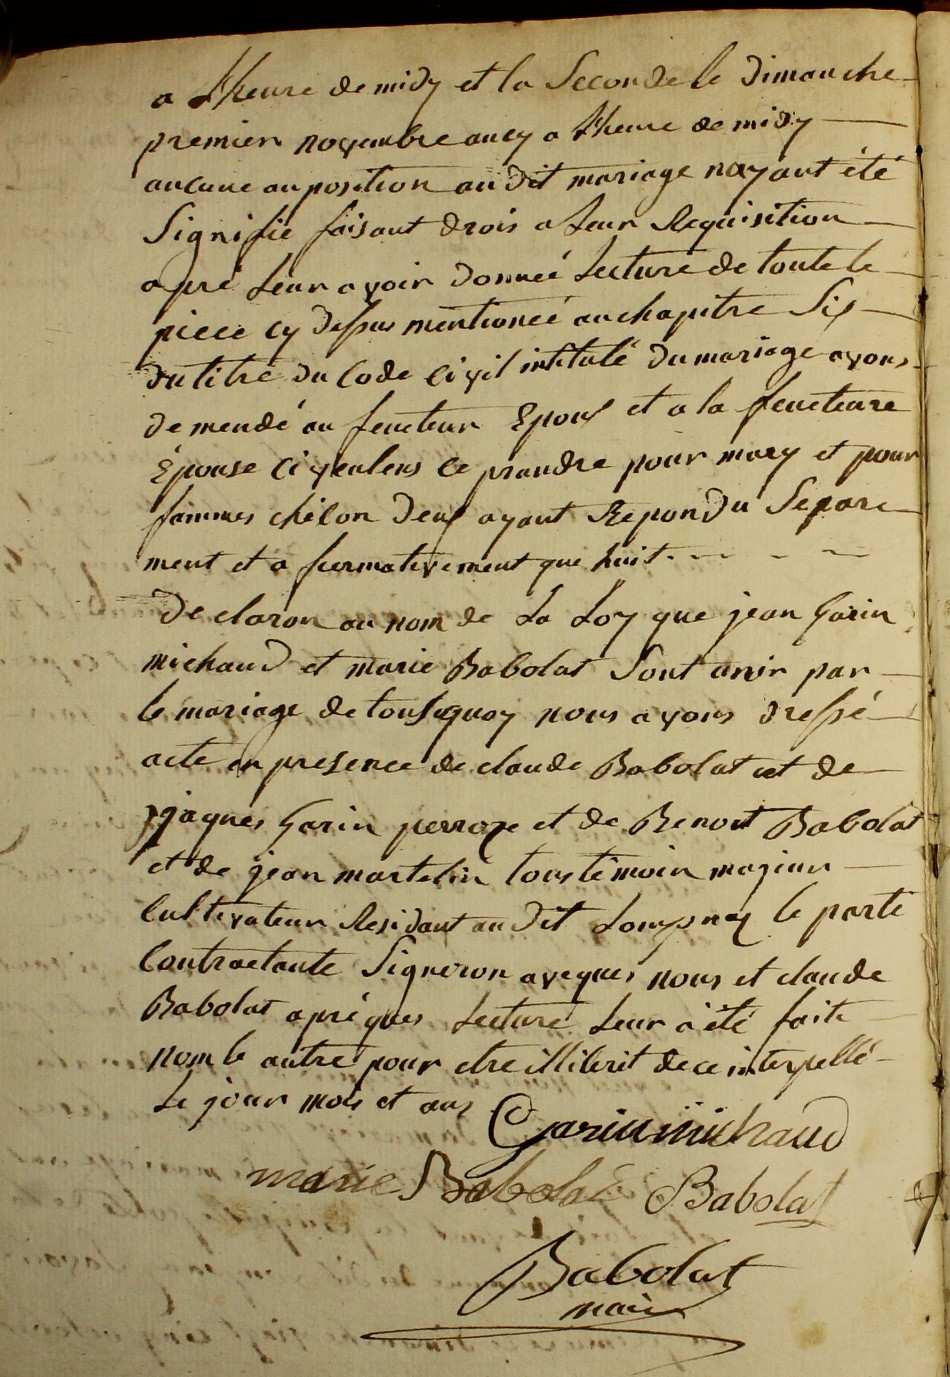 a Lheure de midy et la Seconde le dimanche
premier novembre an cy a Lheure de midy
aucune auposition au dit mariage nayant été
Signifié faisant drois a Leur Requisition
apré Leur avoir donneé Lecture de toute le
piece cy dessus mentioneé au chapitre Six
du titre du Code Civil intitulé du mariage avons
demendé au feucteur Epoux et a la feucteure
Épouse Ci veulens ce prandre pour mary et pour
fammes chécon deux ayant Repondu Separe
ment et a fiermativement que huit
declaron au nom de La Loy que jean Garin
michaud et marie Babolat Sont unir par
le mariage de tousquoy nous avons dressé
acte en presence de claude Babolat et de
jaques Garin perroze et de Benoit Babolat
et de jean martelin tous témoin majeur
Cultivateur Residant au dit Loupnaz le parti
Contractante Signeron aveques nous et claude
Babolat apréques Lecture Leur a été faite
nom le autre pour etre illiterit de ce interpellé
Le jour mois et ans
Garin michaud
marie Babolat Babolat
Babolat
maire